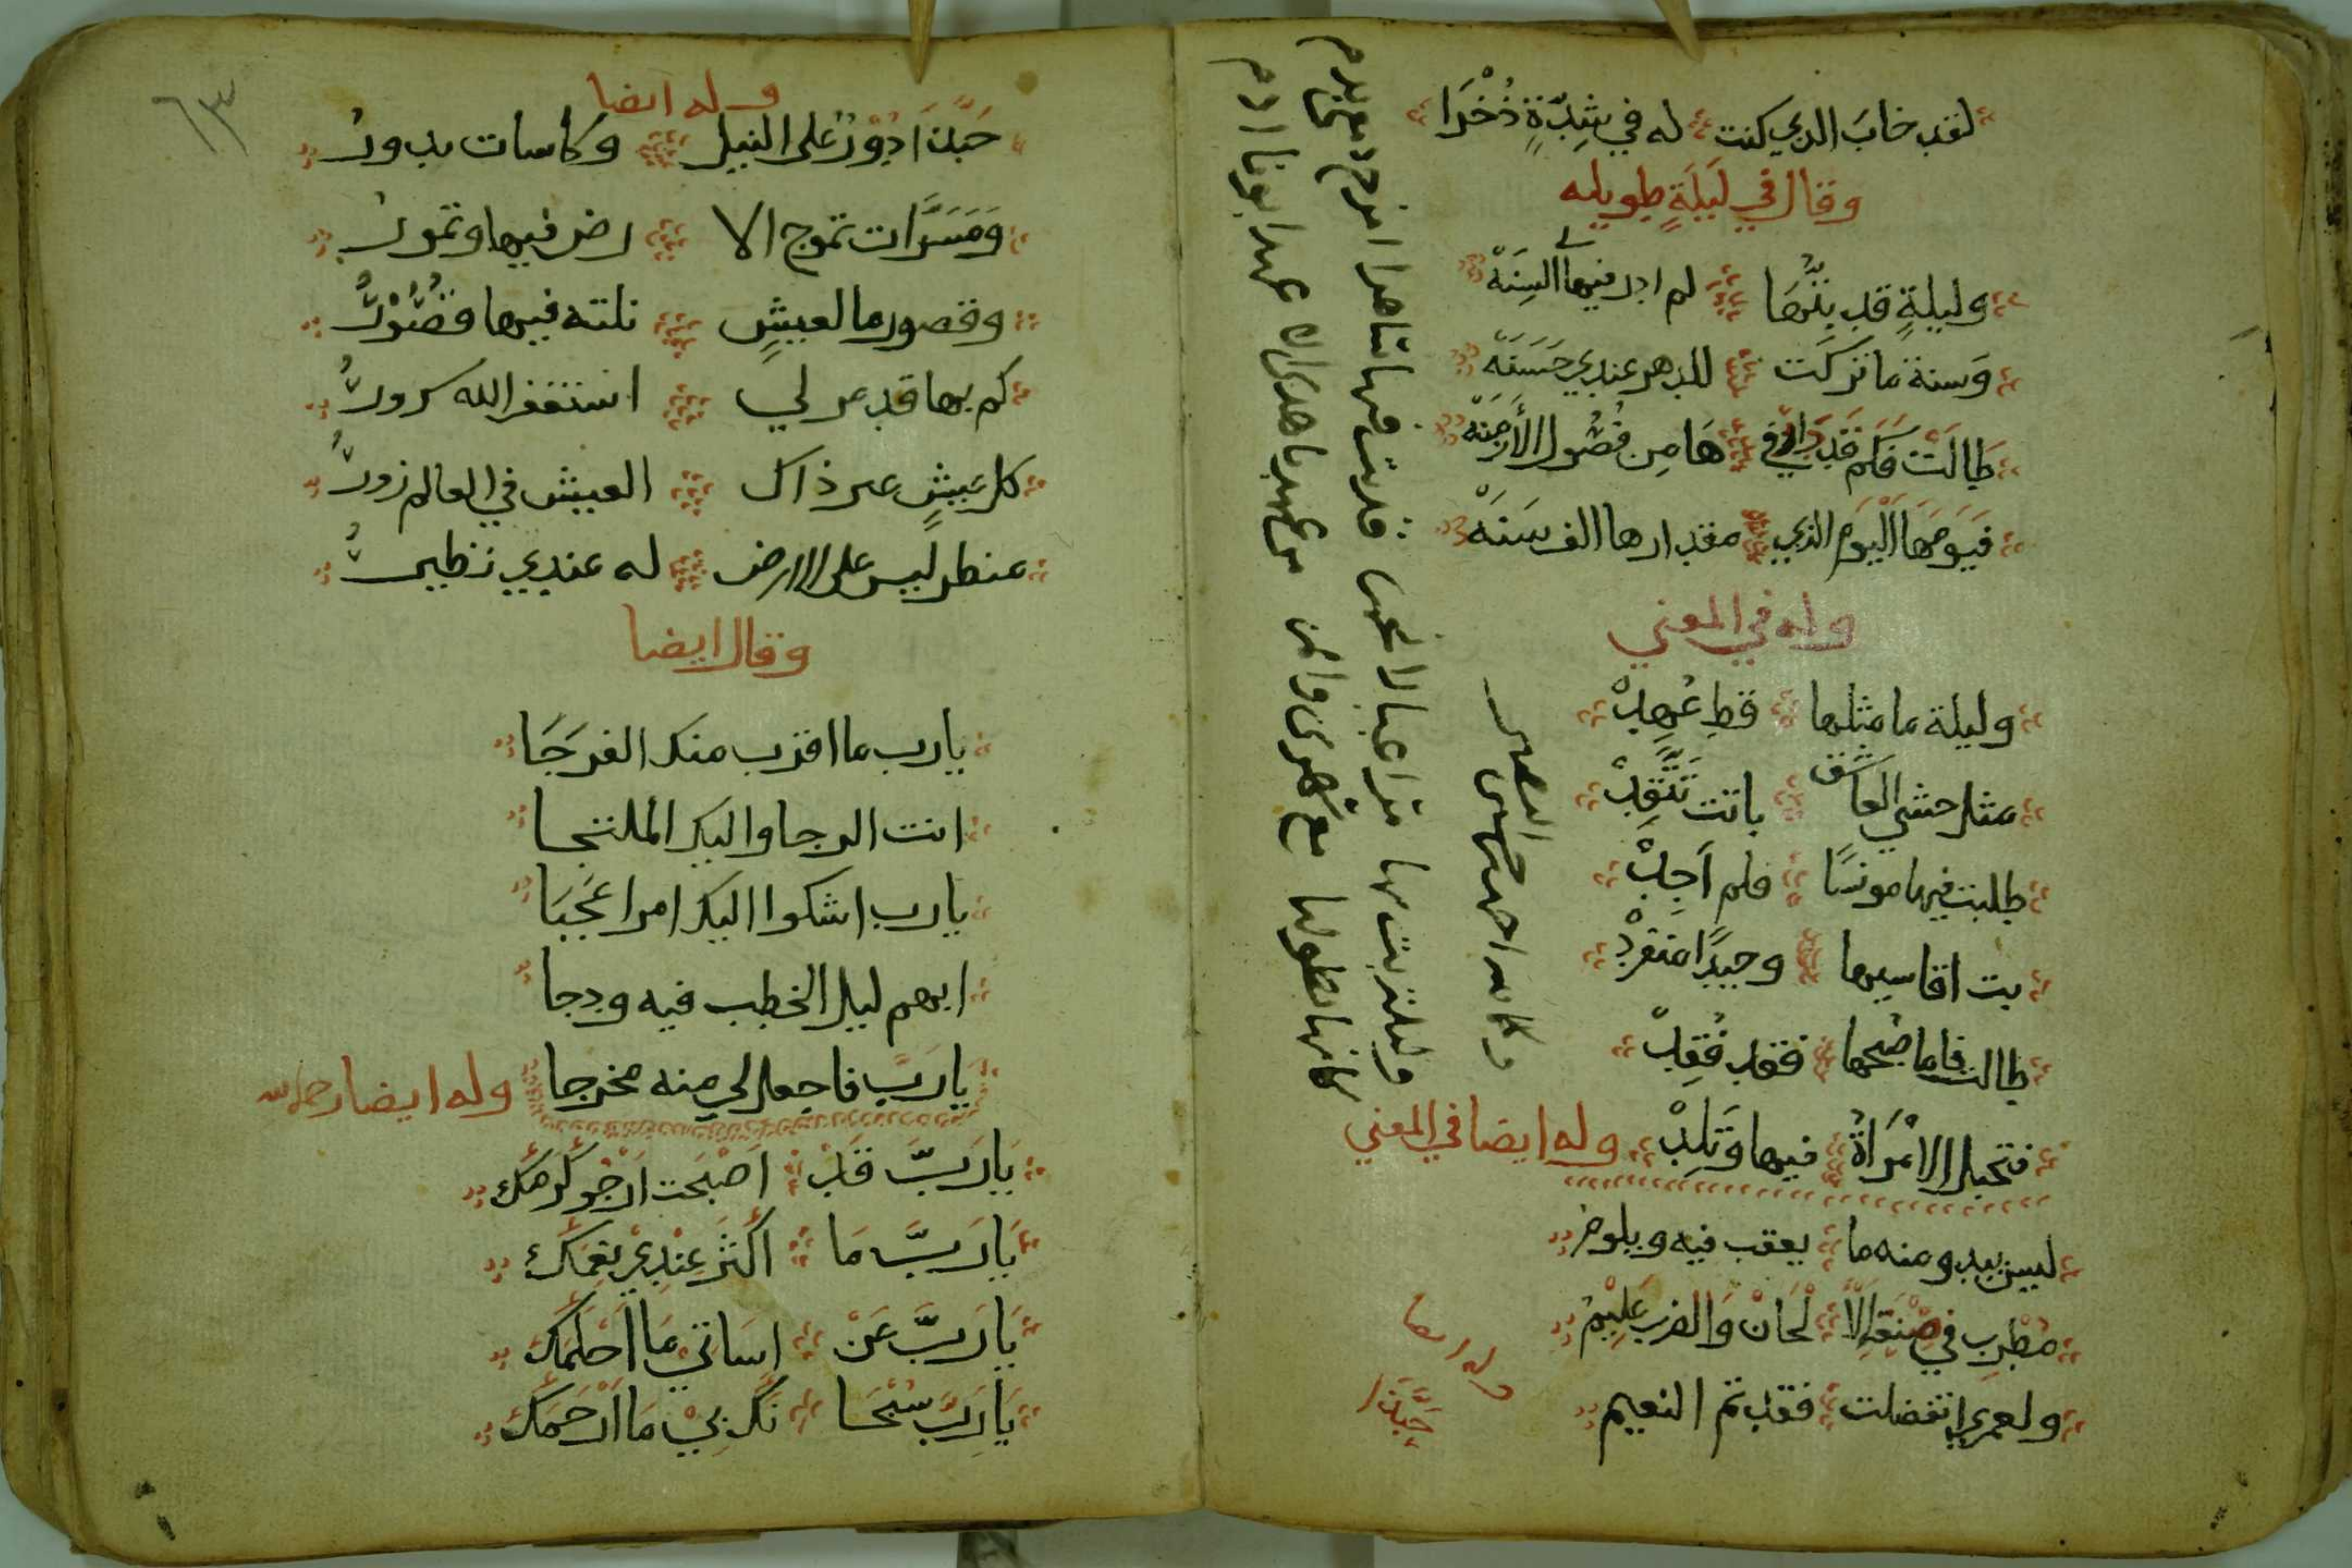 لقد خابَ الدي كنت له في شِدّةٍ ذُخْرَا
وقال في لَيلَةٍ طويله
وليلةٍ قد بتُّها لم ادر فيها السِنَهْ
وَسنة ما تركَت للدهر عندي حَسَنَهْ
طَالَتْ فَكم قَد دَارَ في هَا مِن فُصُول الأزمِنَهْ
فيَومَهَا اليَومَ الذي مقدارها الف سَنَهْ
وله في المعني
وليلة ما مثلها قط عُهِدْ
مثل حشي العاشق باتت تَتَّقِدْ
طلبت فيها مونسًا فلم اَجِدْ
بت اقاسيها وحيدًا منفردْ
طالت فاما صُبحها فقد فُقِدْ
فتحبل الامْرَاةُ فيها وَتَلِدْ وله ايضا في المعني
ليس يبدو منه ما يعقب فيه ويلوم
مُطْرِب في صِنْعَةِ الأَ لْحَانْ وَالضرب عَلِيْمُ
ولعمري ان تفضلت فقد تم النعيم
وله ايضا
حَبَّذا
وله ايضا
حَبَّذا دُوْرٌ على النيل وكأسات تدورُ
وَمَسَرَّات تموج الا رض فيها وتمورُ
وقصور ما لعيشٍ نلته فيها قُصُوْرُ
كم بها قد مر لي استغفر الله سرورُ
كل عيشٍ غير ذاك العيش في العالم زورُ
منظر ليس على الارض له عندي نظيرُ
وقال ايضا
يا رب ما اقرب منك الفرَجَا
انت الرجا واليك الملتجا
يا رب اشكوا اليك امرا عَجَبَا
ابهم ليل الخطب فيه ودجا
يا رَبِّ فاجعل لي منه مخرجا وله ايضا رحمه الله
يَا رَبّ قَدْ اَصْبَحت اَرْجُو كَرَمَكْ
يَا رَبّ مَا اَكْثَرَ عِنْدِيْ نِعَمَكْ
يَا رَبَّ عَنْ اِسَاتي مَا اَحْلَمَكْ
يَا رَبّ سُبْحَا نَكَ بِيْ مَا اَرْحَمَكْ
٦٣